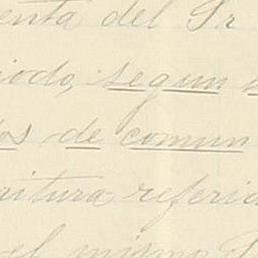 enta del Sr
iodo, segun s
os de comun
ritura referid
el mismo S